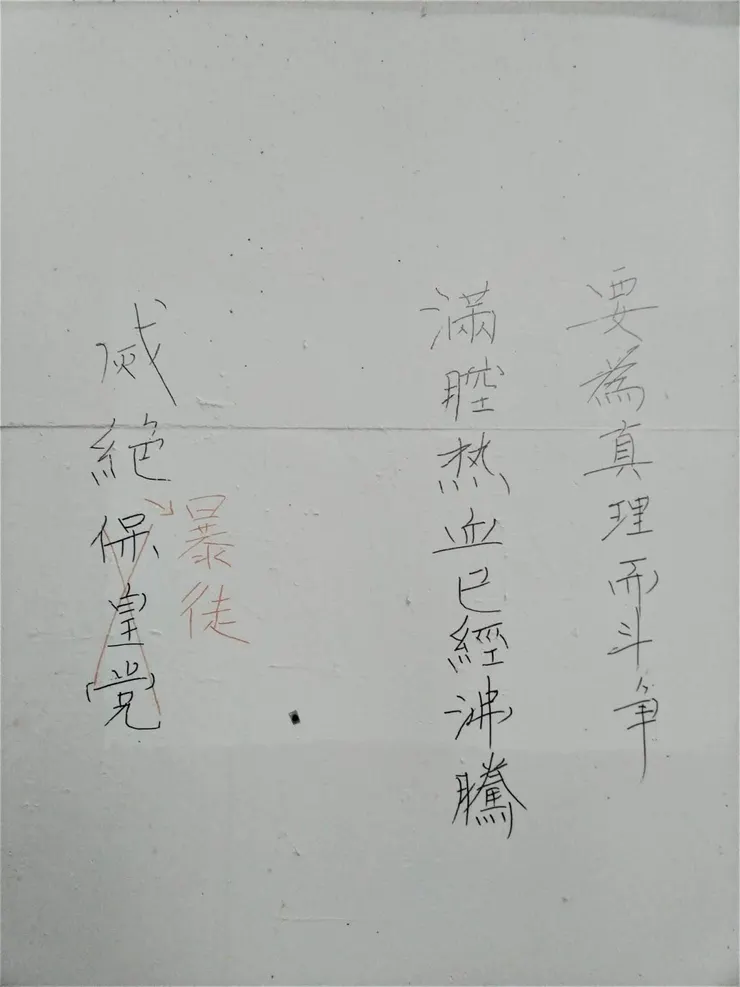 要為真理而斗争
滿腔热血已經沸騰
暴徒
灭絕保皇党